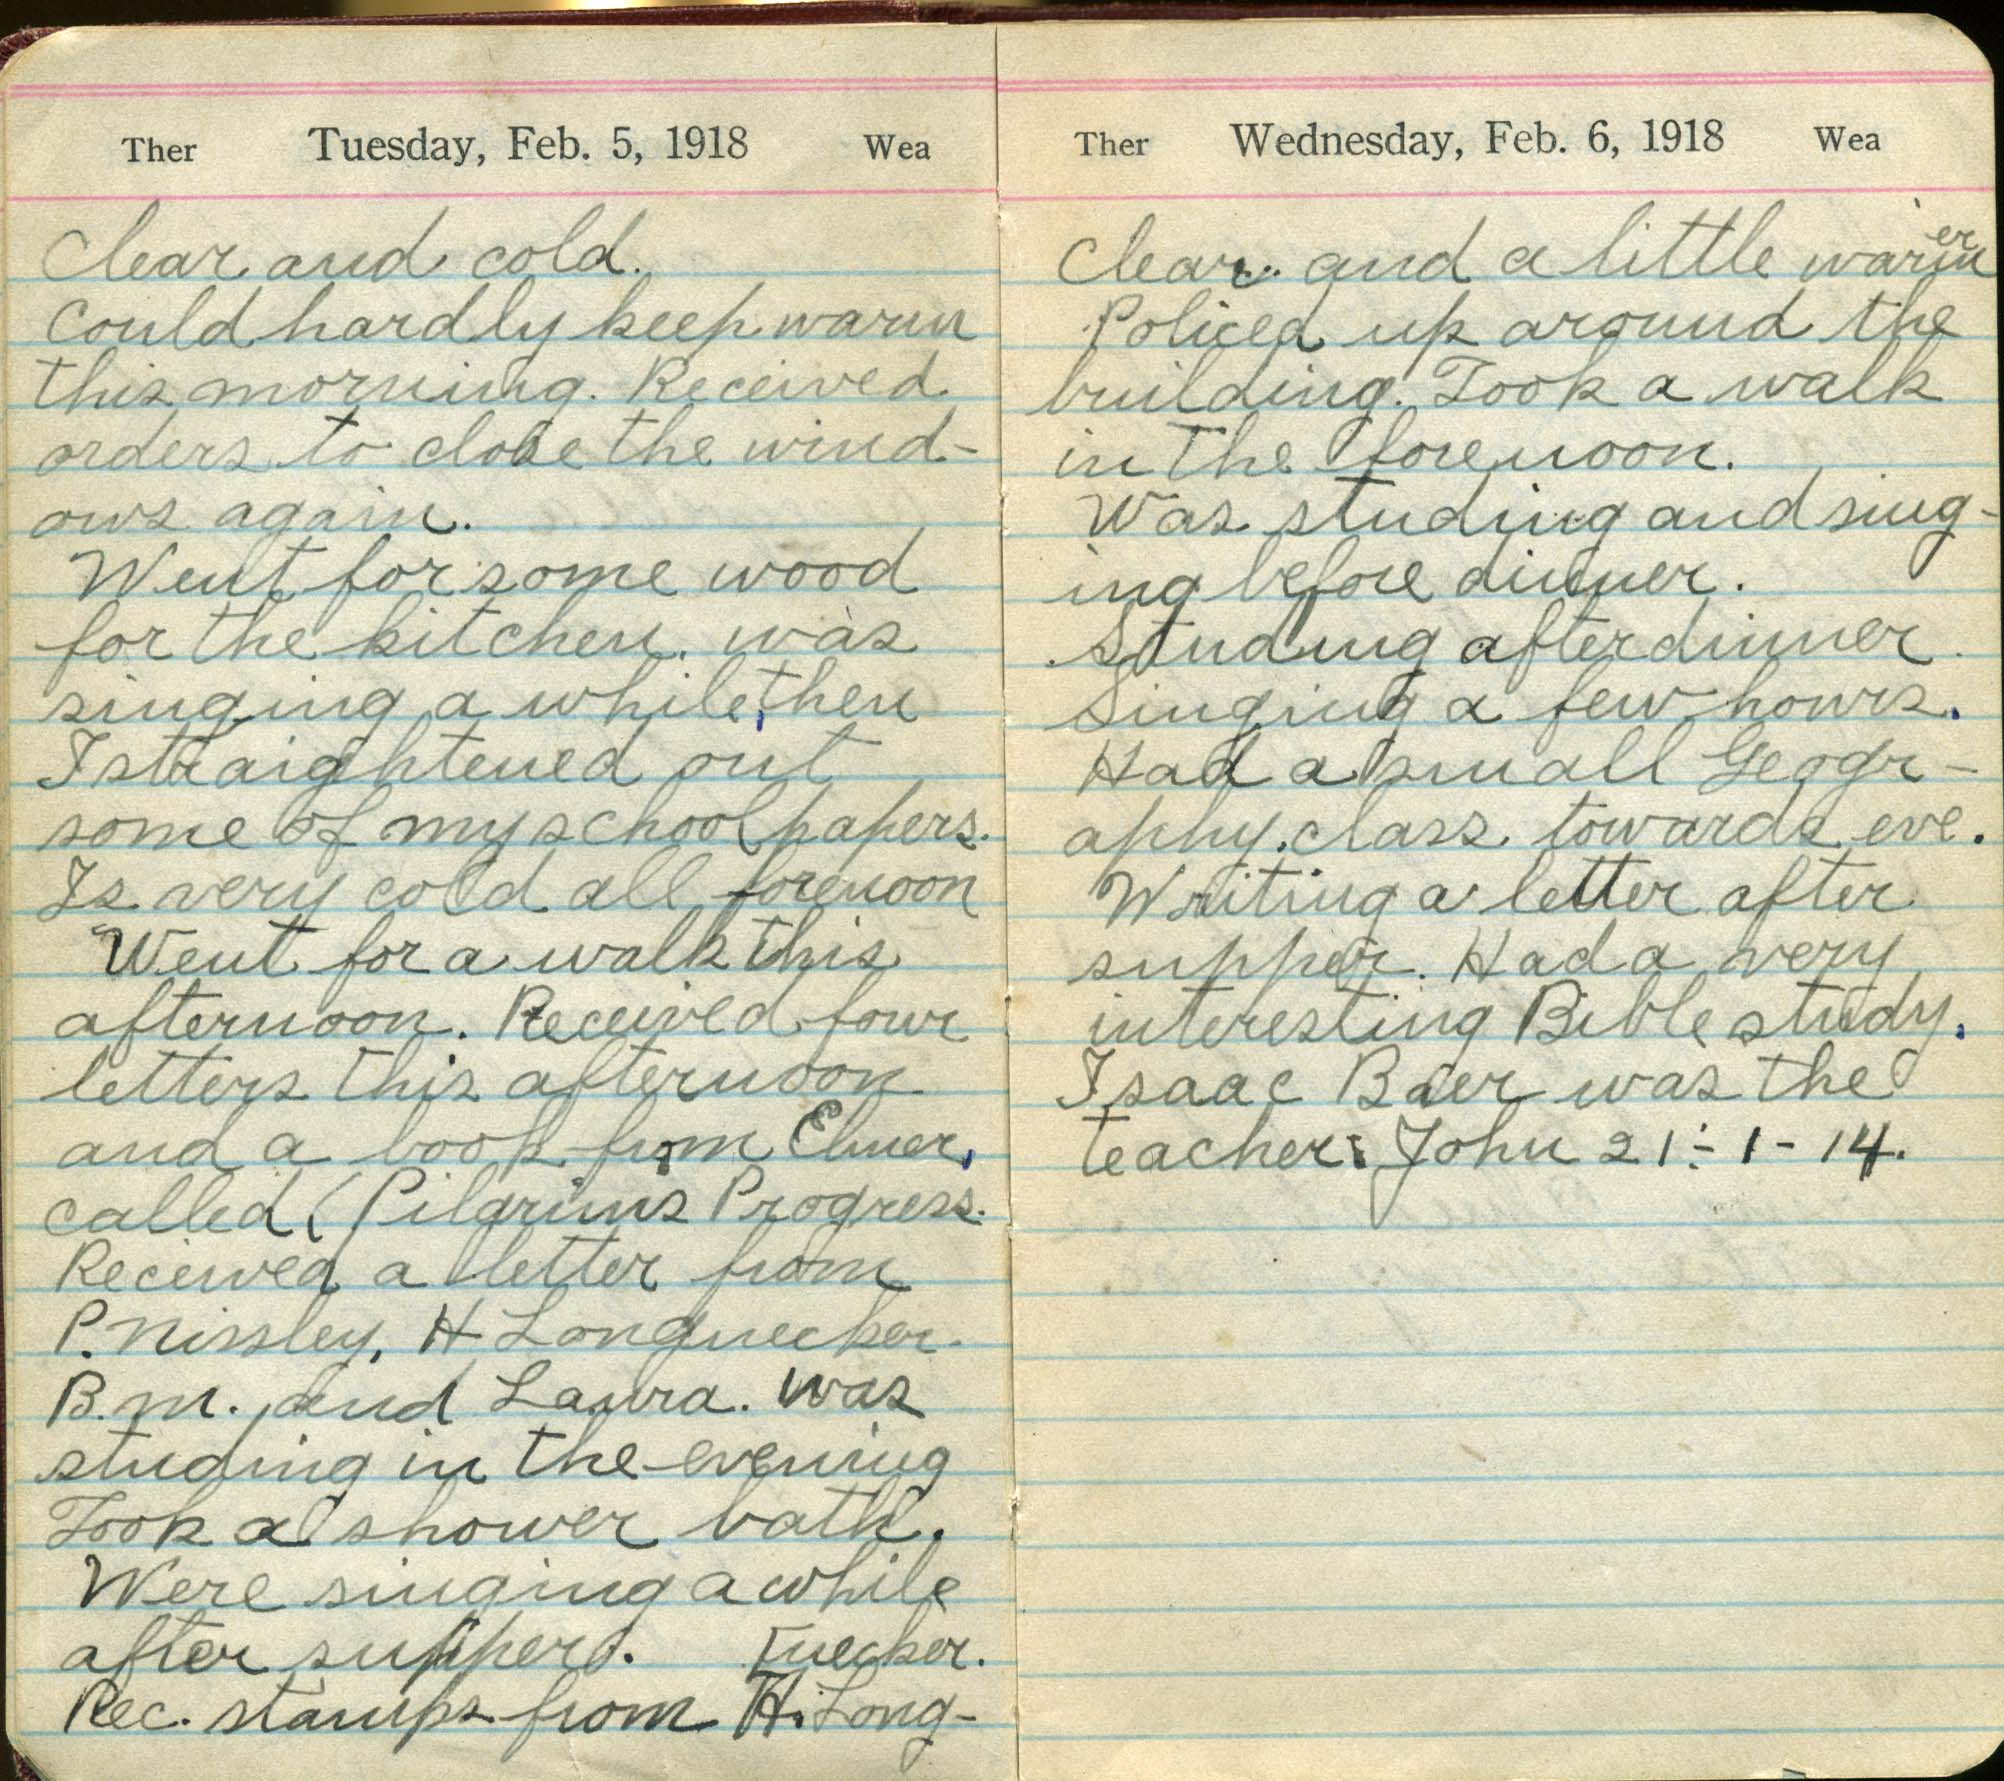 Ther Tuesday, Feb. 5, 1918 Wea
Clear and cold.
Could hardly keep warm
this morning. Received
orders to close the wind-
ows again.
Went for some wood
for the kitchen. was
singing a while, then
I straightened out
some of my school papers.
Is very cold all forenoon
Went for a walk this
afternoon. Received four
letters this afternoon
and a book from Elmer,
called (Pilgrims Progress.
Received a letter from
P. Nissley, H Longnecker.
B.M. and Laura. Was
studing in the evening
Took a shower bath.
Were singing a while
after supper.
Rec. stamps from H. Long-
necker.
Ther Wednesday, Feb. 6, 1918 Wea
Clear and a little warmer
Policed up around the
building. Took a walk
in the forenoon.
Was studing and sing-
ing before dinner.
Studing after dinner.
Singing a few hours.
Had a small Geogr-
aphy class towards eve.
Writing a letter after
supper. Had a very
interesting Bible study.
Isaac Baer was the
teacher: John 21:- 1-14.